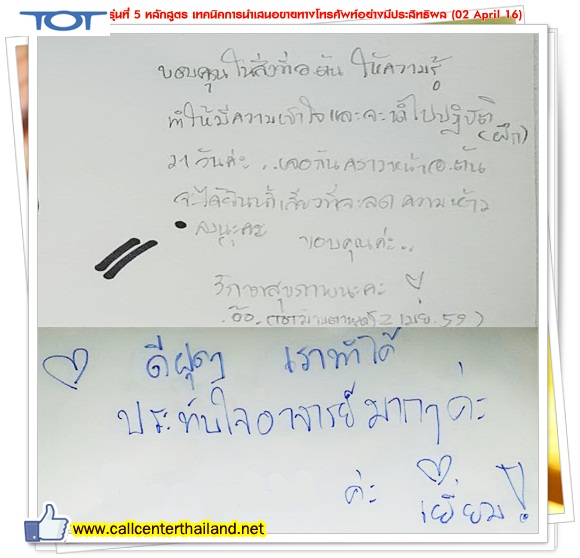 TOT รุ่นที่ 5 หลักสูตร เทคนิคการนำเสนอขายทางโทรศัพท์อย่างมีประสิทธิผล (02 April 16)
ขอบคุณในสิ่งที่อ.ต้น ให้ความรู้
ทำให้มีความเข้าใจและจะนำไปปฏิบัติ
(ฝึก)
21 วันค่ะ ..เจอกันคราวหน้าอ.ต้น
จะได้ยินน้ำเสียงที่จะลดความห้าว
ลงนะคะ ขอบคุณค่ะ..
รักษาสุขภาพนะคะ
2 เม.ย. 59)
ดีฝุดๆ เราทำได้
ประทับใจอาจารย์มากๆค่ะ
ค่ะ เยี่ยม!
www.callcenterthailand.net